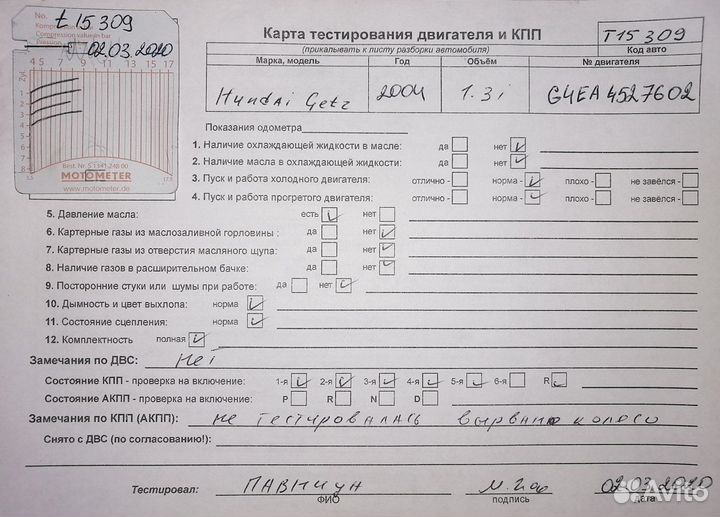 No. t 15 309
Kompressionswert in bar
Compression value in bar
Pression 02.03.2020
4 5 7 9 11 13 15 17
Zyl.
1
2
3
4
5
6
7
8
3,5 17,5
Best. Nr. 5 1 141-248 00
MOTOMETER
www.motometer.de
Карта тестирования двигателя и КПП
(прикалывать к листу разборки автомобиля)
T15309
Код авто
Марка, модель Год Объём № двигателя
Hyundai Getz 2004 1.3i G4EA4527602
Показания одометра
1. Наличие охлаждающей жидкости в масле: да нет
2. Наличие масла в охлаждающей жидкости: да нет
3. Пуск и работа холодного двигателя: отлично - норма - плохо - не завёлся -
4. Пуск и работа прогретого двигателя: отлично - норма - плохо - не завёлся -
5. Давление масла: есть нет
6. Картерные газы из маслозаливной горловины : да нет
7. Картерные газы из отверстия масляного щупа: да нет
8. Наличие газов в расширительном бачке: да нет
9. Посторонние стуки или шумы при работе: да нет
10. Дымность и цвет выхлопа: норма
11. Состояние сцепления: норма
12. Комплектность полная
Замечания по ДВС: Нет
Состояние КПП - проверка на включение: 1-я 2-я 3-я 4-я 5-я 6-я R
Состояние АКПП - проверка на включение: P R N D
Замечания по КПП (АКПП): не тестировалась вырвано колесо
Снято с ДВС (по согласованию!):
Тестировал: 02.03.2020
ФИО подпись дата
Avito